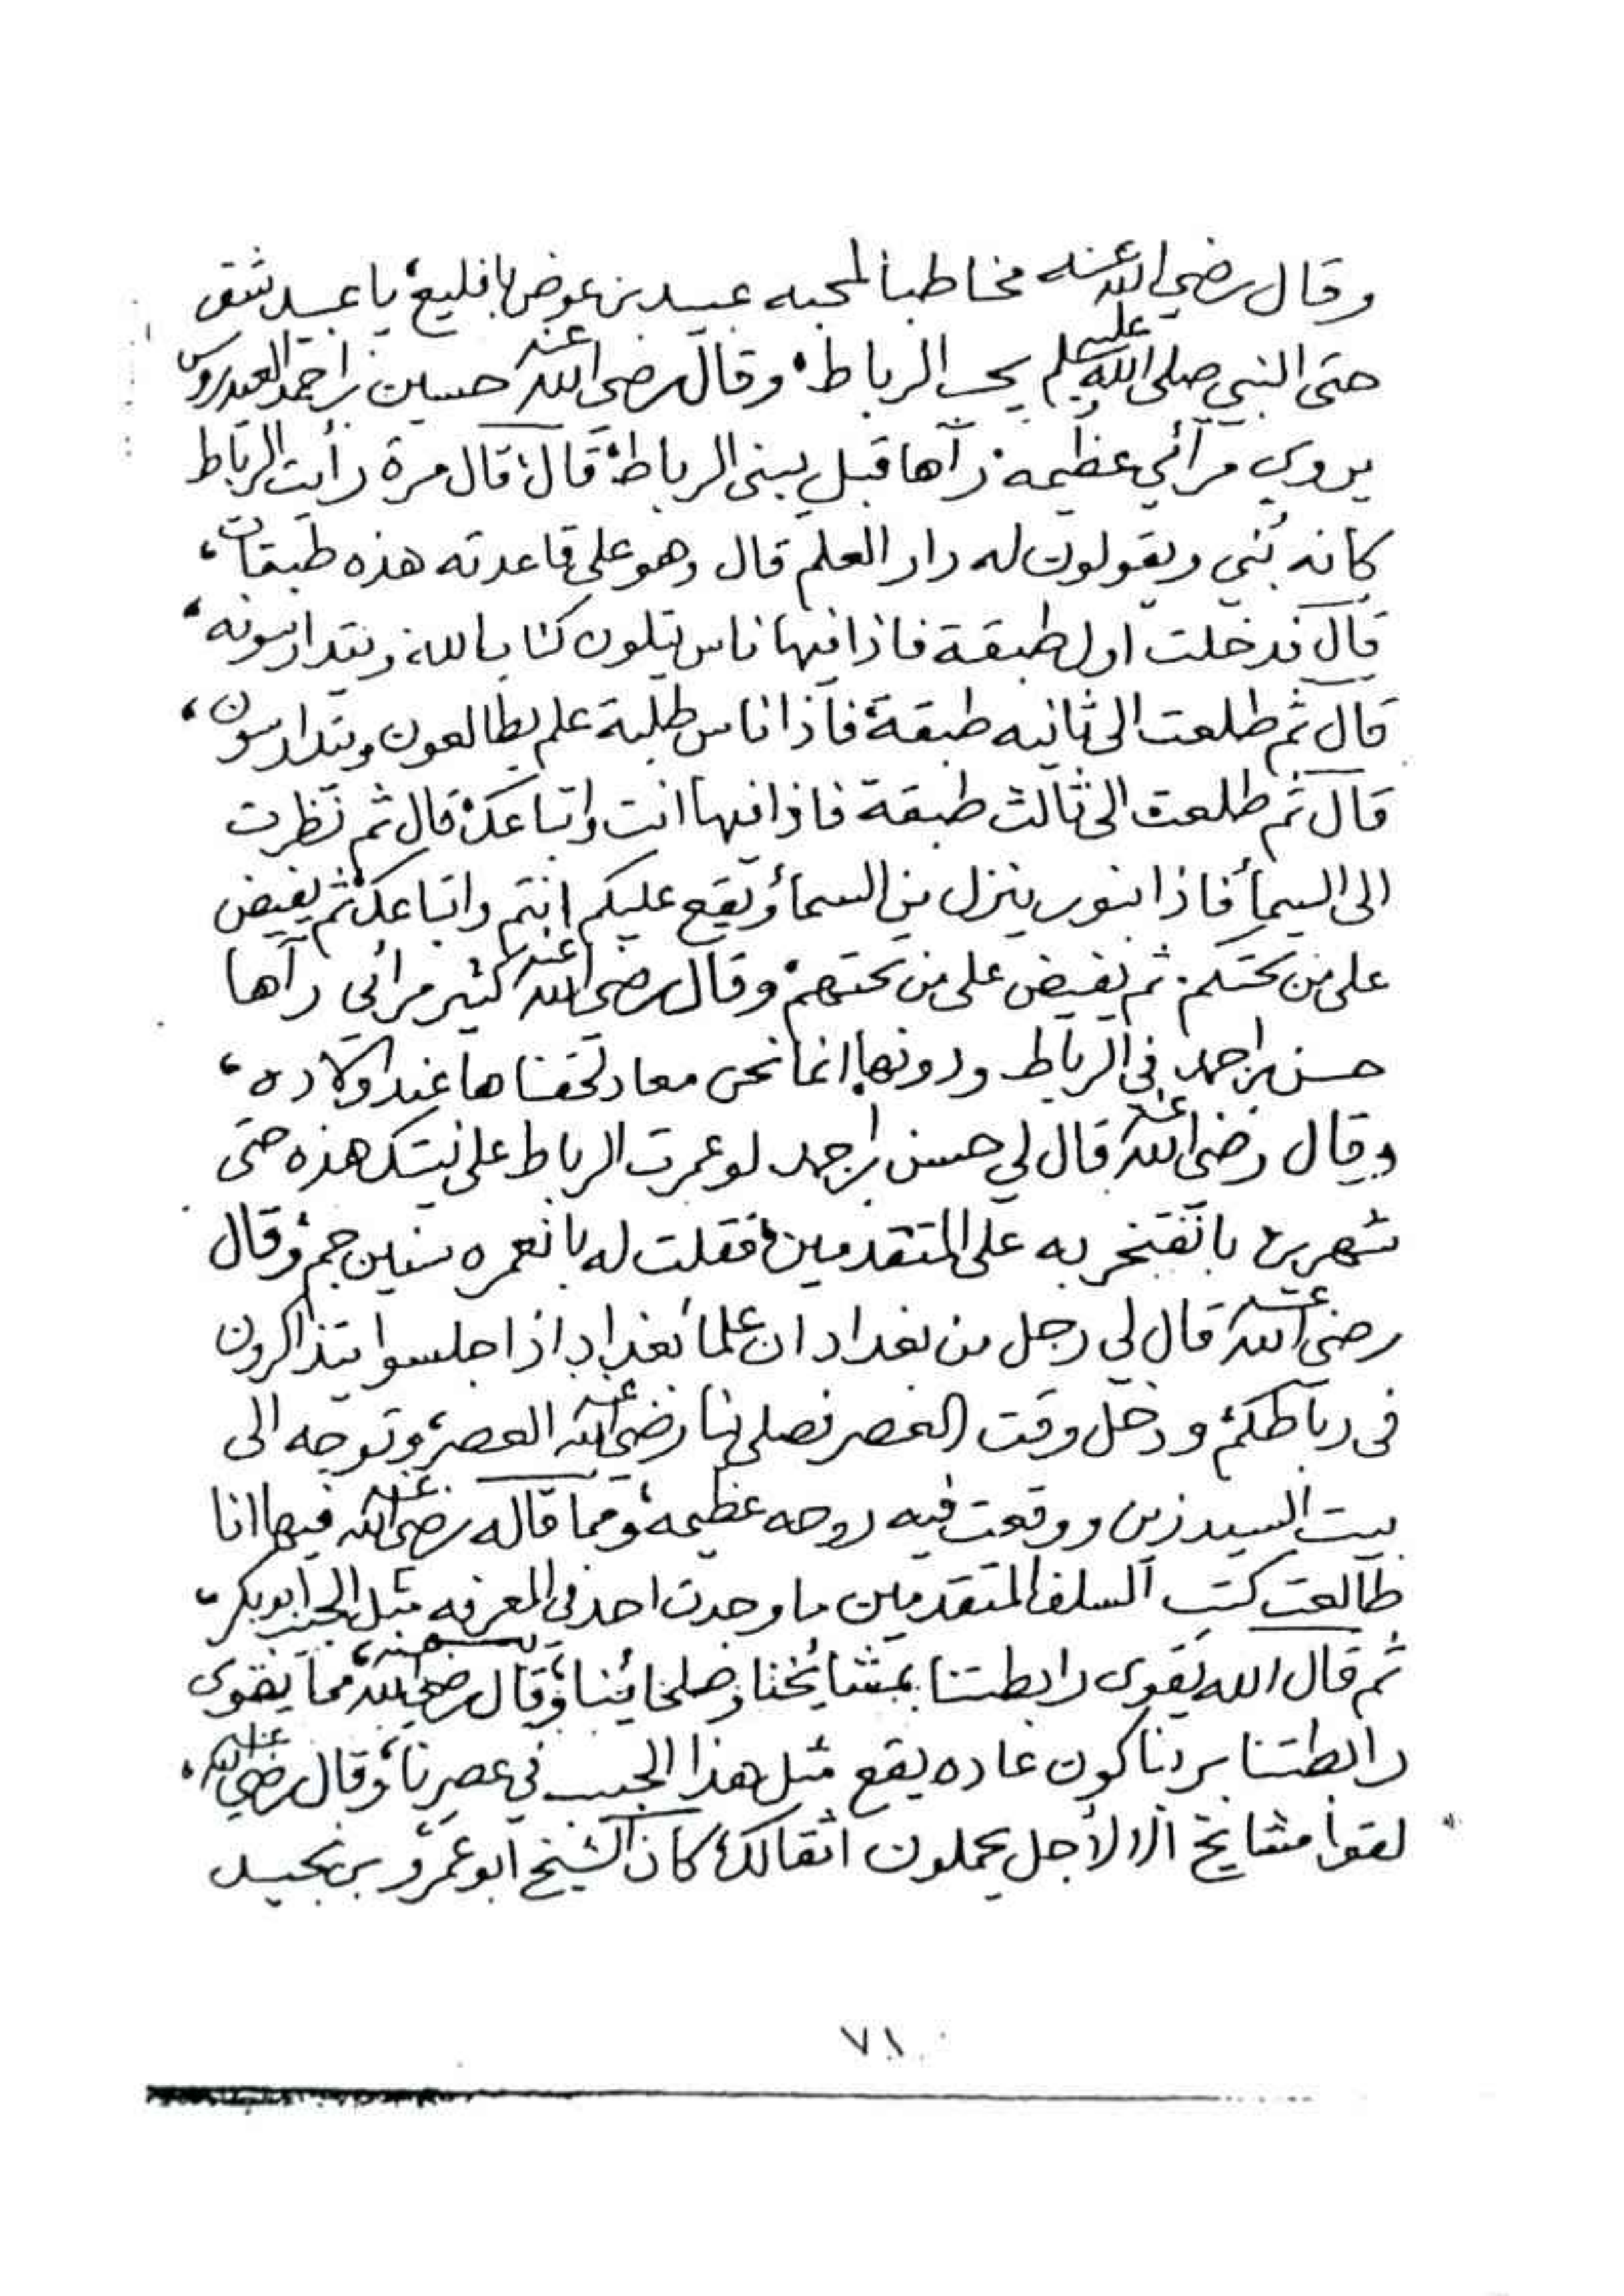 وقال رضي الله عنه مخاطبا لمحبه عبيد بن عوض بافليع، يا عبيد شق
حتى النبي صلى الله عليه وسلم يحب الرباط، وقال رضي الله عنه حسين بن احمد العيدروس
يروي مرآئي عظيمه رآها قبل يبنى الرباط، قال، قال مرة رأيت الرباط
كانه بُني ويقولون له دار العلم قال وهو على قاعدته هذه طبقات،
قال فدخلت اول طبقة فاذا فيها ناس يتلون كتاب الله، ويتدارسونه،
قال ثم طلعت الى ثانيه طبقة، فاذا ناس طلبة علم يطالعون ويتدارسون،
قال ثم طلعت الى ثالث طبقة فاذا فيها انت واتباعك، قال ثم نظرت
الى السمأ فاذا بنور ينزل من السمأ ويقع عليكم انتم واتباعك، ثم يفيض
على من تحتكم، ثم يفيض على من تحتهم، وقال رضي الله عنه كثير مرائي رآها
حسن بن احمد في الرباط ودونها، انما نحن معاد لحقناها عند اولاده،
وقال رضي الله عنه قال لي حسن بن احمد لو عمرت الرباط على نيتك هذه حتى
شهرين بانفتخر به على المتقدمين، فقلت له بانعمره سنين جم، وقال
رضي الله عنه قال لي رجل من بغداد ان علمأ بغداد اذا جلسوا يتذاكرون
في رباطكم، ودخل وقت العصر فصلى بنا رضي الله عنه العصر، وتوجه الى
بيت السيد زين ووقعت فيه روحه عظيمه، ومما قاله رضي الله عنه فيها انا
طالعت كتب السلف المتقدمين ما وجدت احد في المعرفه مثل الحبيب ابوبكر،
ثم قال الله يقوي رابطتنا بمشايخنا وصلحائنا، وقال رضي الله عنه، مما يقوي
رابطتنا بربنا كون عاده يقع مثل هذا الحبيب في عصرنا، وقال رضي الله عنه،
لقوا مشايخ الا لأجل يحملون اثقالك، كان الشيخ ابو عمرو بن نجيد
٧١